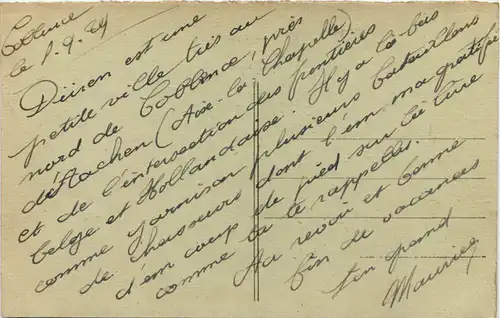 Coblence
le 1.9.29
Düren est une
petite ville très au
nord de Coblence, près
d'Aachen (Aix-la-Chapelle)
et de l'intersection des frontières
belge et Hollandaise. Il y a là-bas
comme garnison plusieurs bataillons
de chasseurs dont l'un m'a gratifié
d'un coup de pied sur la tête
comme tu te rappelles.
Au revoir et bonne
fin de vacances
Ton grand
Maurice